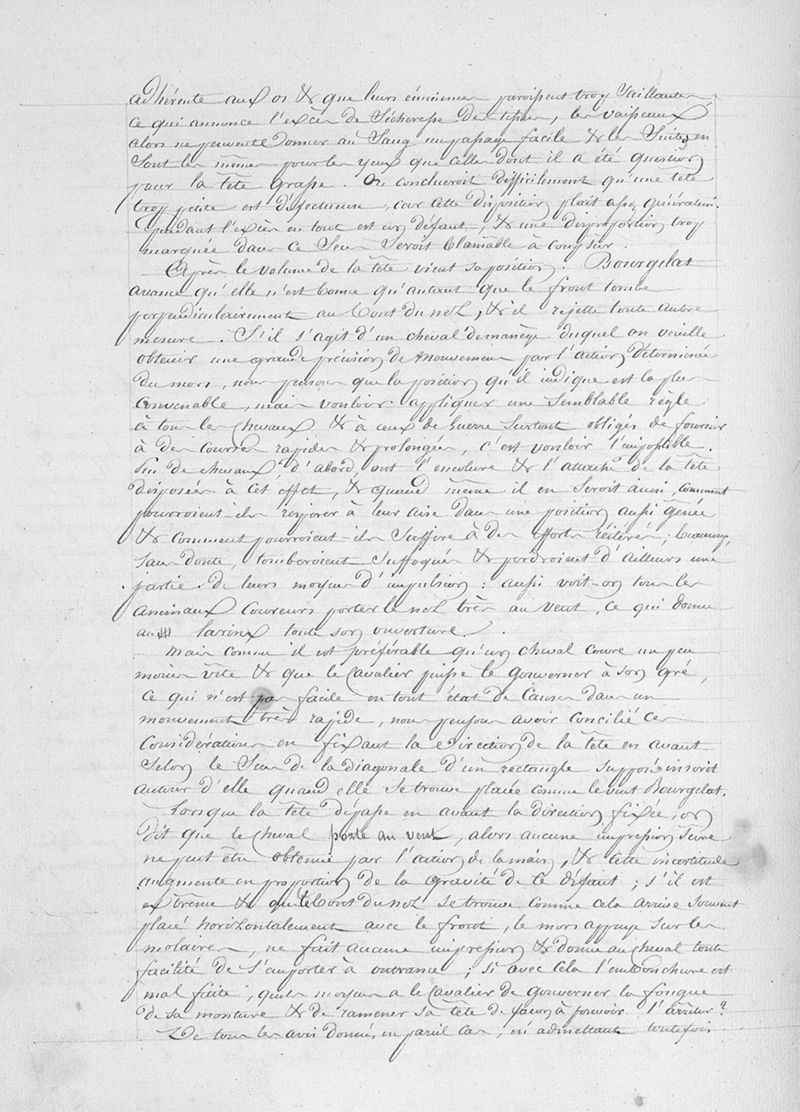 adhérente aux os & que leurs éminences paroissent trop saillantes
ce qui annonce l'excès de sécheresse des tissus, les vaisseaux
alors ne peuvent donner au sang un passage facile & les suites en
sont les mêmes pour les yeux que celles dont il a été question
pour la tête grasse. On conclueroit difficilement qu'une tête
trop petite est défectueuse, car cette disposition plait assez généralem.
Cependant l'excès en tout est un défaut, & une disproportion trop
marquée dans ce sens seroit blamable à coup sûr.
Après le volume de la tête vient sa position. Bourgelat
avance qu'elle n'est bonne qu'autant que le front tombe
perpendiculairement au bout du nez, & il rejette toute autre
mesure. S'il s'agit d'un cheval de manège duquel on veuille
obtenir une grande précision de mouvemens par l'action déterminée
du mors, nous pensons que la position qu'il indique est la plus
convenable, mais vouloir appliquer une semblable règle
à tous les chevaux & à ceux de guerre surtout obligés de fournir
à des courses rapides & prolongées, c'est vouloir l'impossible.
Peu de chevaux d'abord, ont l'encolure & l'attache de la tête
disposées à cet effet, & quand même il en seroit ainsi, comment
pourroient-ils respirer à leur aise dans une position aussi gênée
& comment pourroient-ils suffire à des efforts réitérés; beaucoup,
sans doute, tomberoient suffoqués & perdroient d'ailleurs une
partie de leurs moyens d'impulsion: aussi voit-on tous les
animaux coureurs porter le nez très au vent, ce qui donne
au larinx toute son ouverture.
Mais comme il est préférable qu'un cheval coure un peu
moins vite & que le cavalier puisse le gouverner à son gré,
ce qui n'est pas facile en tout état de cause dans un
mouvement très rapide, nous pensons avoir concilié ces
considérations en fixant la direction de la tête en avant
selon le sens de la diagonale d'un rectangle supposé inscrit
autour d'elle quand elle se trouve placée comme le veut Bourgelat.
Lorsque la tête dépasse en avant la direction fixée, on
dit que le cheval porte au vent, alors aucune impression sure
ne peut être obtenue par l'action de la main, & cette incertitude
augmente en proportion de la gravité de ce défaut; s'il est
extrême & que le bout du nez se trouve comme cela arrive souvent
placé horizontalement avec le front, le mors appuye sur les
molaires, ne fait aucune impression & donne au cheval toute
facilité de s'emporter à outrance; si avec cela l'embouchure est
mal faite, quels moyens a le cavalier de gouverner la fougue
de sa monture & de ramener sa tête de façon à pouvoir l'arrêter?
De tous les avis donnés en pareil cas, en admettant toutefois